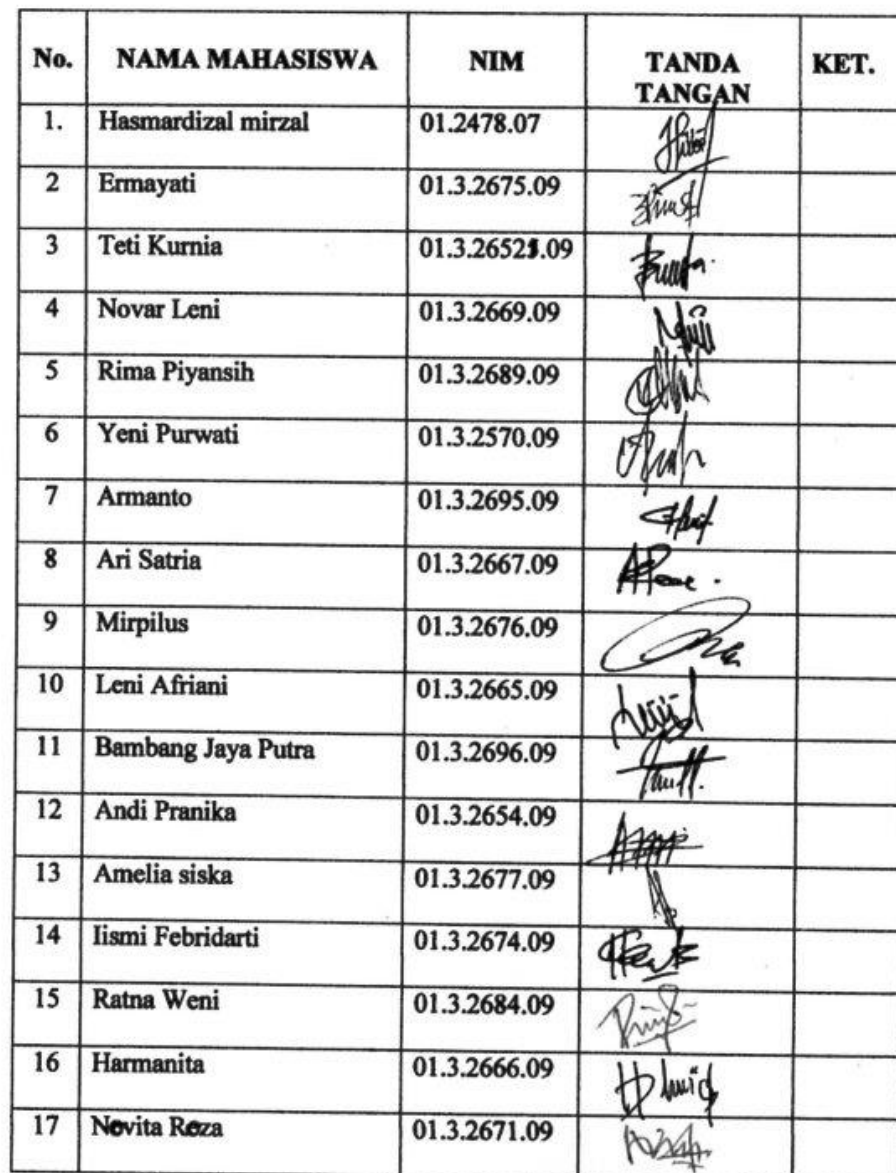 No. NAMA MAHASISWA NIM TANDA TANGAN KET.
1. Hasmardizal mirzal 01.2478.07
2 Ermayati 01.3.2675.09
3 Teti Kurnia 01.3.2652.09
4 Novar Leni 01.3.2669.09
5 Rima Piyansih 01.3.2689.09
6 Yeni Purwati 01.3.2570.09
7 Armanto 01.3.2695.09
8 Ari Satria 01.3.2667.09
9 Mirpilus 01.3.2676.09
10 Leni Afriani 01.3.2665.09
11 Bambang Jaya Putra 01.3.2696.09
12 Andi Pranika 01.3.2654.09
13 Amelia siska 01.3.2677.09
14 Iismi Febridarti 01.3.2674.09
15 Ratna Weni 01.3.2684.09
16 Harmanita 01.3.2666.09
17 Novita Reza 01.3.2671.09